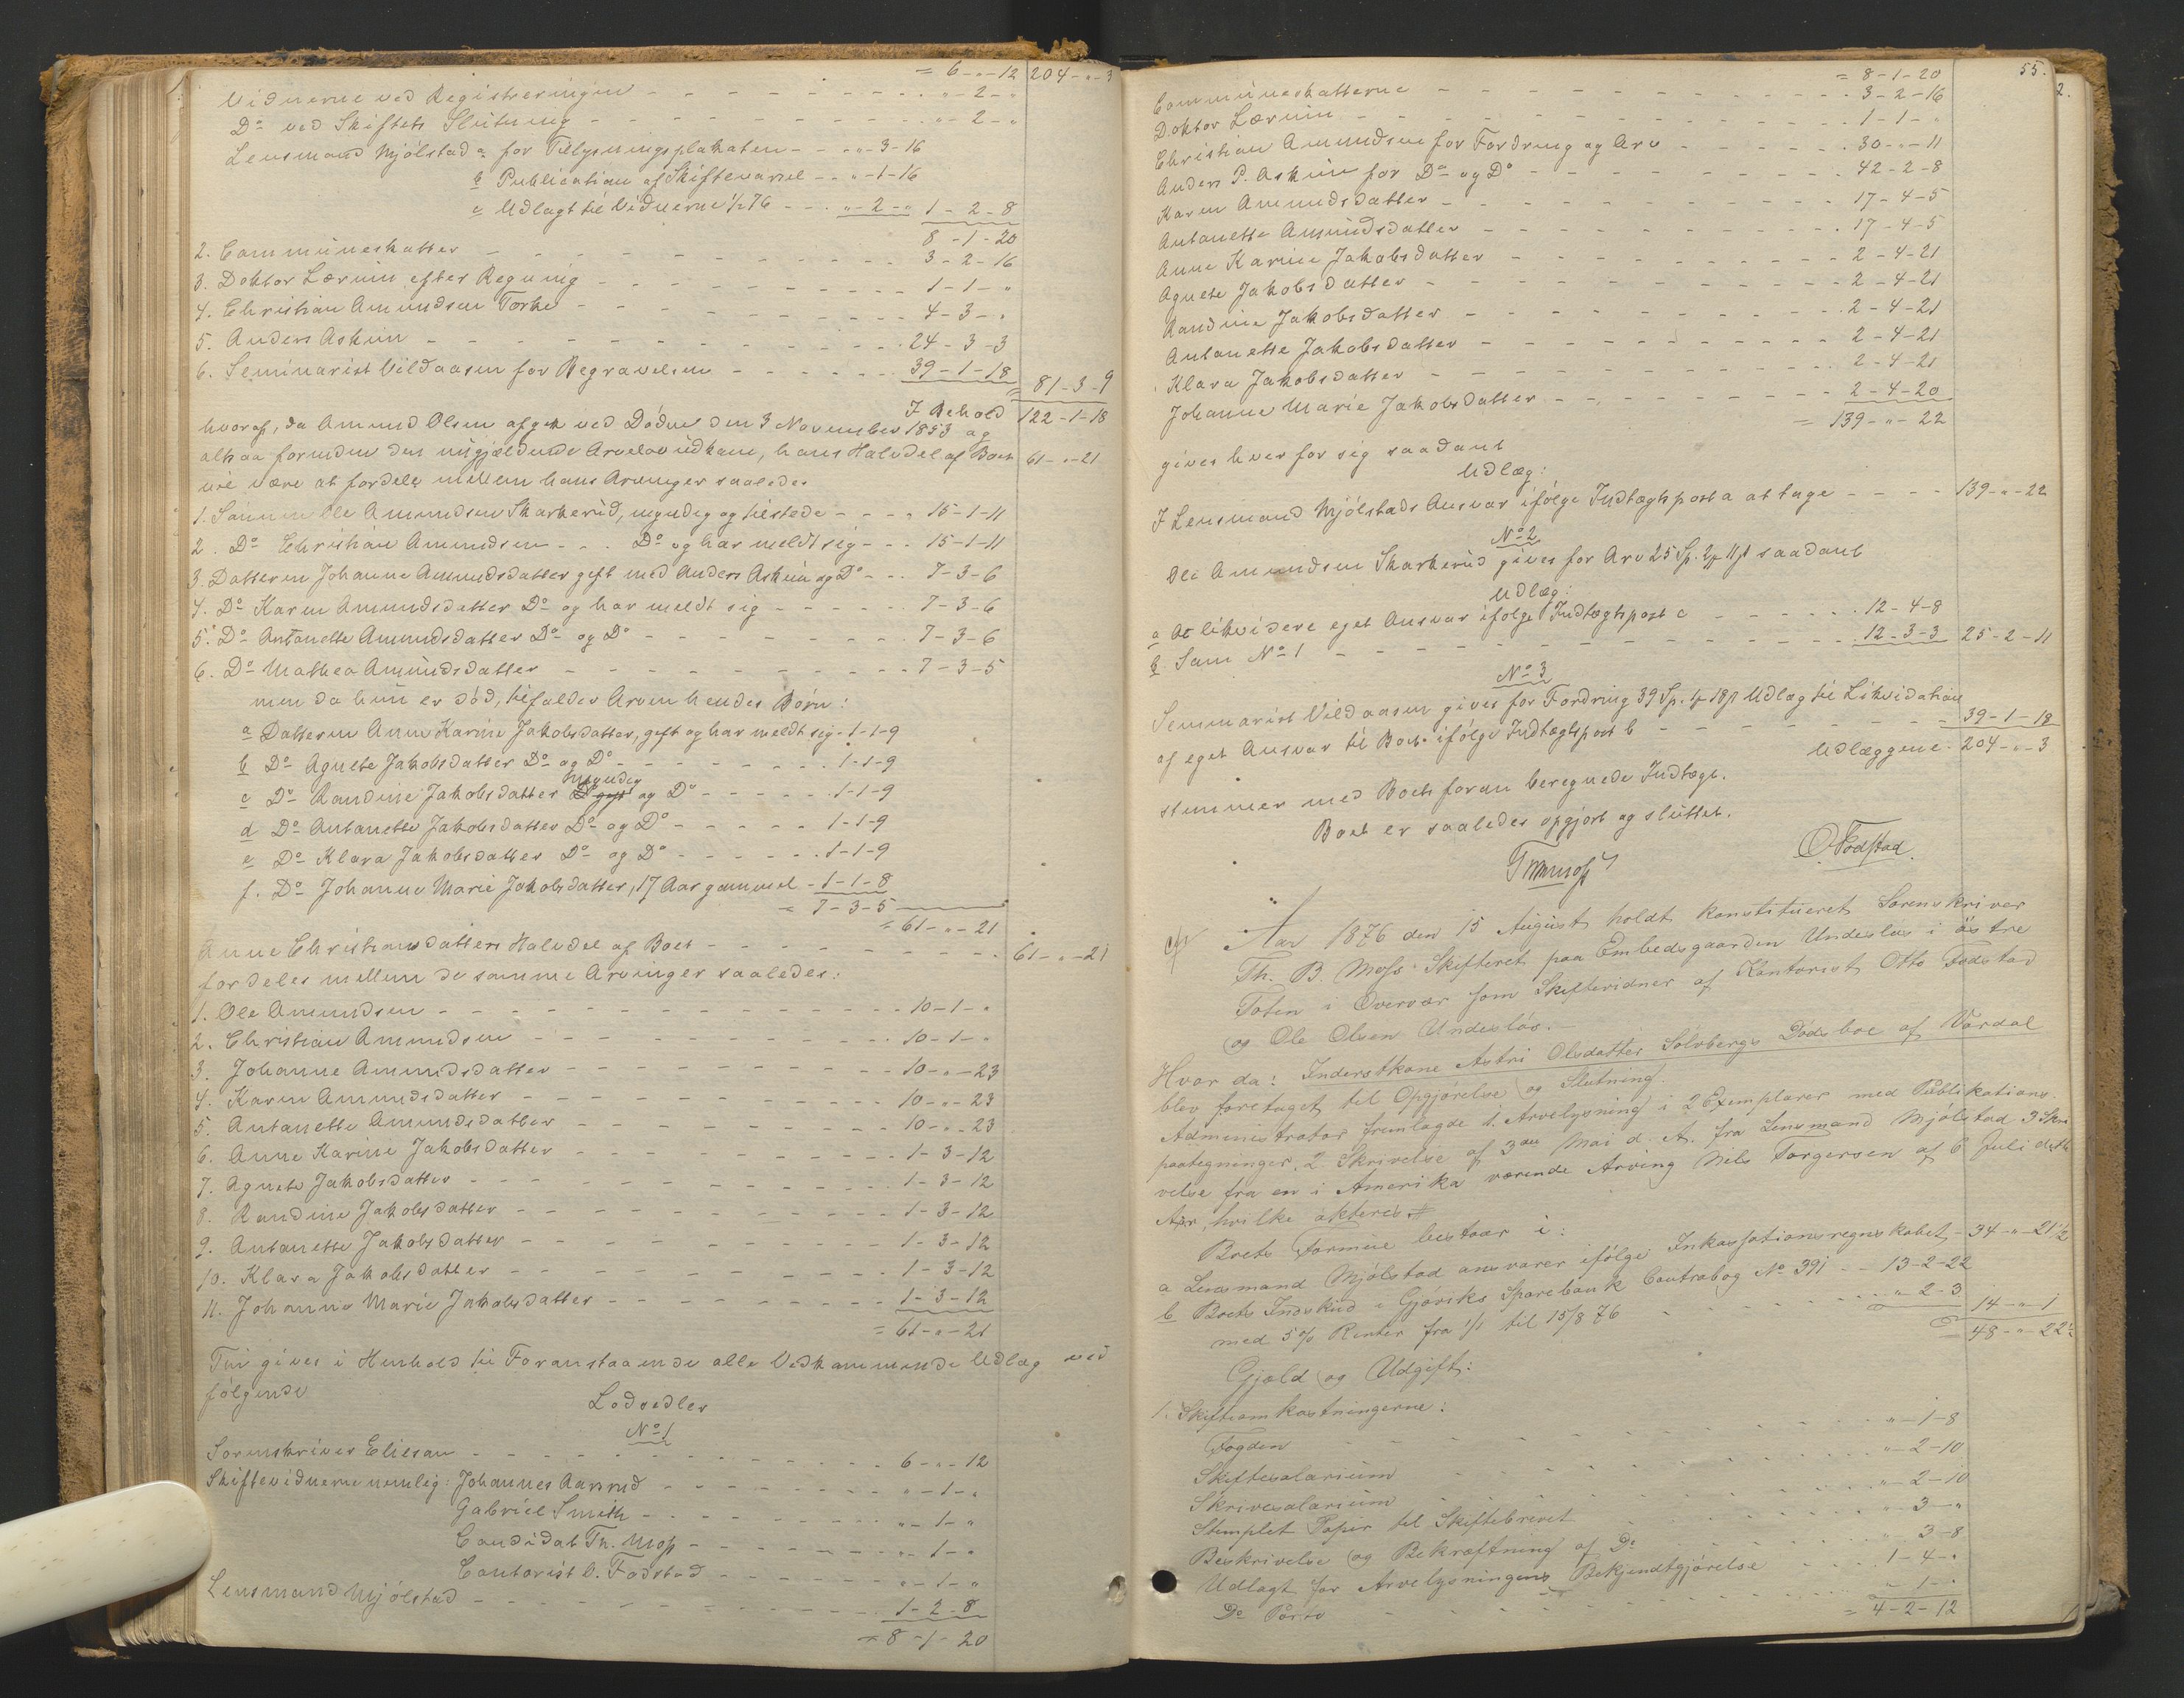 = 6-„-12 204-„-3
Vidnerne ved Registreringen - - - „-2-„
Do ved Skiftets Slutning - - - „-2-„
Lensmand Mjølstad a for Tillysningsplakaten - - „-3-16
b Publication af Skiftevarsel - - „-1-16
c Udlagt til Vidnerne 1/2 76 - - - „-2-„ 1-2-8
8-1-20
2. Communeskatter - - - 3-2-16
3. Doktor Lærum efter Regning - - - 1-1-„
4. Christian Amundsen Torke - - - 4-3-„
5. Anders Askim - - - 24-3-3
6. Seminarist Vildaasen for Begravelsen - - - 39-1-18 = 81-3-9
I Behold 122-1-18
hvoraf, da Amund Olsen afgik ved Døden den 3 November 1853 og
altsaa forinden den nugjældende Arvelov udkom, hans Halvdel af Boet 61-„-21
vil være at fordele mellem hans Arvinger saaledes
1. Sønnen Ole Amundsen Skarkerud, myndig og tilstede - - - 15-1-11
2. Do Christian Amundsen - - - Do og har meldt sig - - - 15-1-11
3. Datteren Johanne Amundsdatter gift med Anders Askim og Do - - - 7-3-6
4. Do Karen Amundsdatter Do og har meldt sig - - - 7-3-6
5. Do Antonette Amundsdatter Do og Do - - - 7-3-6
6. Do Mathea Amundsdatter - - - 7-3-5
men da hun er død, tilfalder Arven hendes Børn:
a Datteren Anne Karine Jakobsdatter, gift og har meldt sig - 1-1-9
b Do Agnete Jakobsdatter Do og Do - - - 1-1-9
myndig
c Do Randine Jakobsdatter Do gift og Do - - - 1-1-9
d Do Antonette Jakobsdatter Do og Do - - - 1-1-9
e Do Klara Jakobsdatter Do og Do - - - 1-1-9
f. Do Johanne Marie Jakobsdatter, 17 Aar gammel - 1-1-8
= 7-3-5
= 61-„-21
Anne Christiansdatters Halvdel af Boet - - - 61-„-21
fordeles mellem de samme Arvinger saaledes:
1. Ole Amundsen - - - 10-1-„
2. Christian Amundsen - - - 10-1-„
3. Johanne Amundsdatter - - - 10-„-23
4. Karen Amundsdatter - - - 10-„-23
5. Antonette Amundsdatter - - - 10-„-23
6. Anne Karine Jakobsdatter - - - 1-3-12
7. Agnete Jakobsdatter - - - 1-3-12
8. Randine Jakobsdatter - - - 1-3-12
9. Antonette Jakobsdatter - - - 1-3-12
10. Klara Jakobsdatter - - - 1-3-12
11. Johanne Marie Jakobsdatter - - - 1-3-12
= 61-„-21
Thi gives i Henhold til Foranstaaende alle Vedkommende Udlæg ved
følgende
Lodsedler
No 1
Sorenskriver Eliesen - - - 6-„-12
Skiftevidnerne nemlig: Johannes Aasrud - - - „-1-„
Gabriel Smith - - - „-1-„
Candidat Th. Moss - - - „-1-„
Contorist O. Fodstad - - - „-1-„
Lensmand Mjølstad - - - 1-2-8
= 8-1-20
55.
2.
= 8-1-20
Communeskatterne - - - 3-2-16
Doktor Lærum - - - 1-1-„
Christian Amundsen for Fordring og Arv - - - 30-„-11
Anders P. Askim for Do og Do - - - 42-2-8
Karen Amundsdatter - - - 17-4-5
Antonette Amundsdatter - - - 17-4-5
Anne Karine Jakobsdatter - - - 2-4-21
Agnete Jakobsdatter - - - 2-4-21
Randine Jakobsdatter - - - 2-4-21
Antonette Jakobsdatter - - - 2-4-21
Klara Jakobsdatter - - - 2-4-21
Johanne Marie Jakobsdatter - - - 2-4-20
= 139-„-22
gives hver for sig saadant
Udlæg:
I Lensmand Mjølstads Ansvar ifølge Indtægtspost a at tage - - - 139-„-22
No 2
Ole Amundsen Skarkerud gives for Arv 25 Sp. 2 ʄ 11 β saadant
Udlæg:
a At likvidere eget Ansvar ifølge Indtægtspost c - - - 12-4-8
b Som No 1 - - - 12-3-3 25-2-11
No 3
Seminarist Vildaasen gives for Fordring 39 Sp. 1 ʄ 18 β Udlæg til Likvidation
af eget Ansvar til Boet ifølge Indtægtspost b - - - 39-1-18
Udlæggene = 204-„-3
stemmer med Boets foran beregnede Indtægt.
Boet er saaledes opgjort og sluttet.
Th Moss
O Fodstad
Aar 1876 den 15 August holdt konstitueret Sorenskriver
Th. B. Moss Skifteret paa Embedsgaarden Undesløs i østre
Toten i Overvær som Skiftevidner af Kontorist Otto Fodstad
og Ole Olsen Undesløs.-
Hvor da: Inderstkone Astri Olsdatter Sölvbergs Dødsboe af Vardal
blev foretaget til Opgjørelse og Slutning.
Administrator fremlagde 1. Arvelysning i 2 Exemplarer med Publikations-
paategninger. 2 Skrivelse af 3die Mai d. A. fra Lensmand Mjølstad 3 Skri
velse fra en i Amerika værende Arving Nils Torgersen af 6 Juli dette
Aar, hvilke akteres
Boets Formue bestaar i:
a Lensmand Mjølstad ansvarer ifølge Inkassationsregnskabet - 34-„-21½
b Boets Indskud i Gjøviks Sparebank Contrabog No 391 - - 13-2-22
med 5% Renter fra 1/1 til 15/8 76 - - - „-2-3 14-„-1
= 48-„-22½
Gjæld og Udgift:
1. Skifteomkostningerne:
Fogden - - - „-1-8
Skiftesalarium - - - „-2-10
Skrivesalarium - - - „-2-10
Stemplet Papir til Skiftebrevet - - - „-3-„
Beskrivelse og Bekræftning af Do - - - „-3-8
Udlagt for Arvelysningens Bekjendtgjørelse - - - 1-4-„
Do Porto - - - „-1-„
= 4-2-12